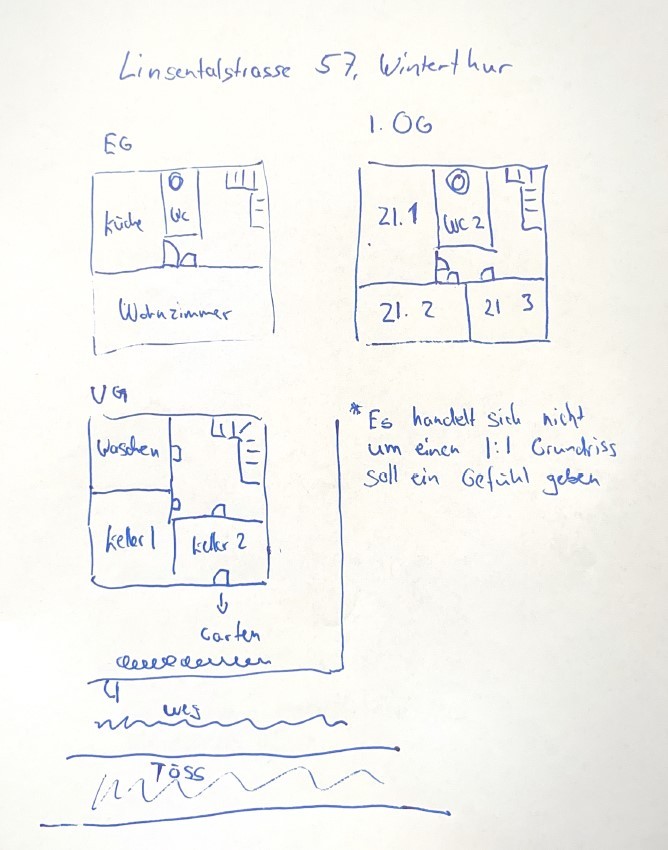 Linsentalstrasse 57, Winterthur
EG
1. OG
Küche
WC
Wohnzimmer
Zi. 1
WC 2
Zi. 2
Zi 3
UG
Waschen
Keller 1
Keller 2
Garten
* Es handelt sich nicht
um einen 1:1 Grundriss
soll ein Gefühl geben
Weg
Töss